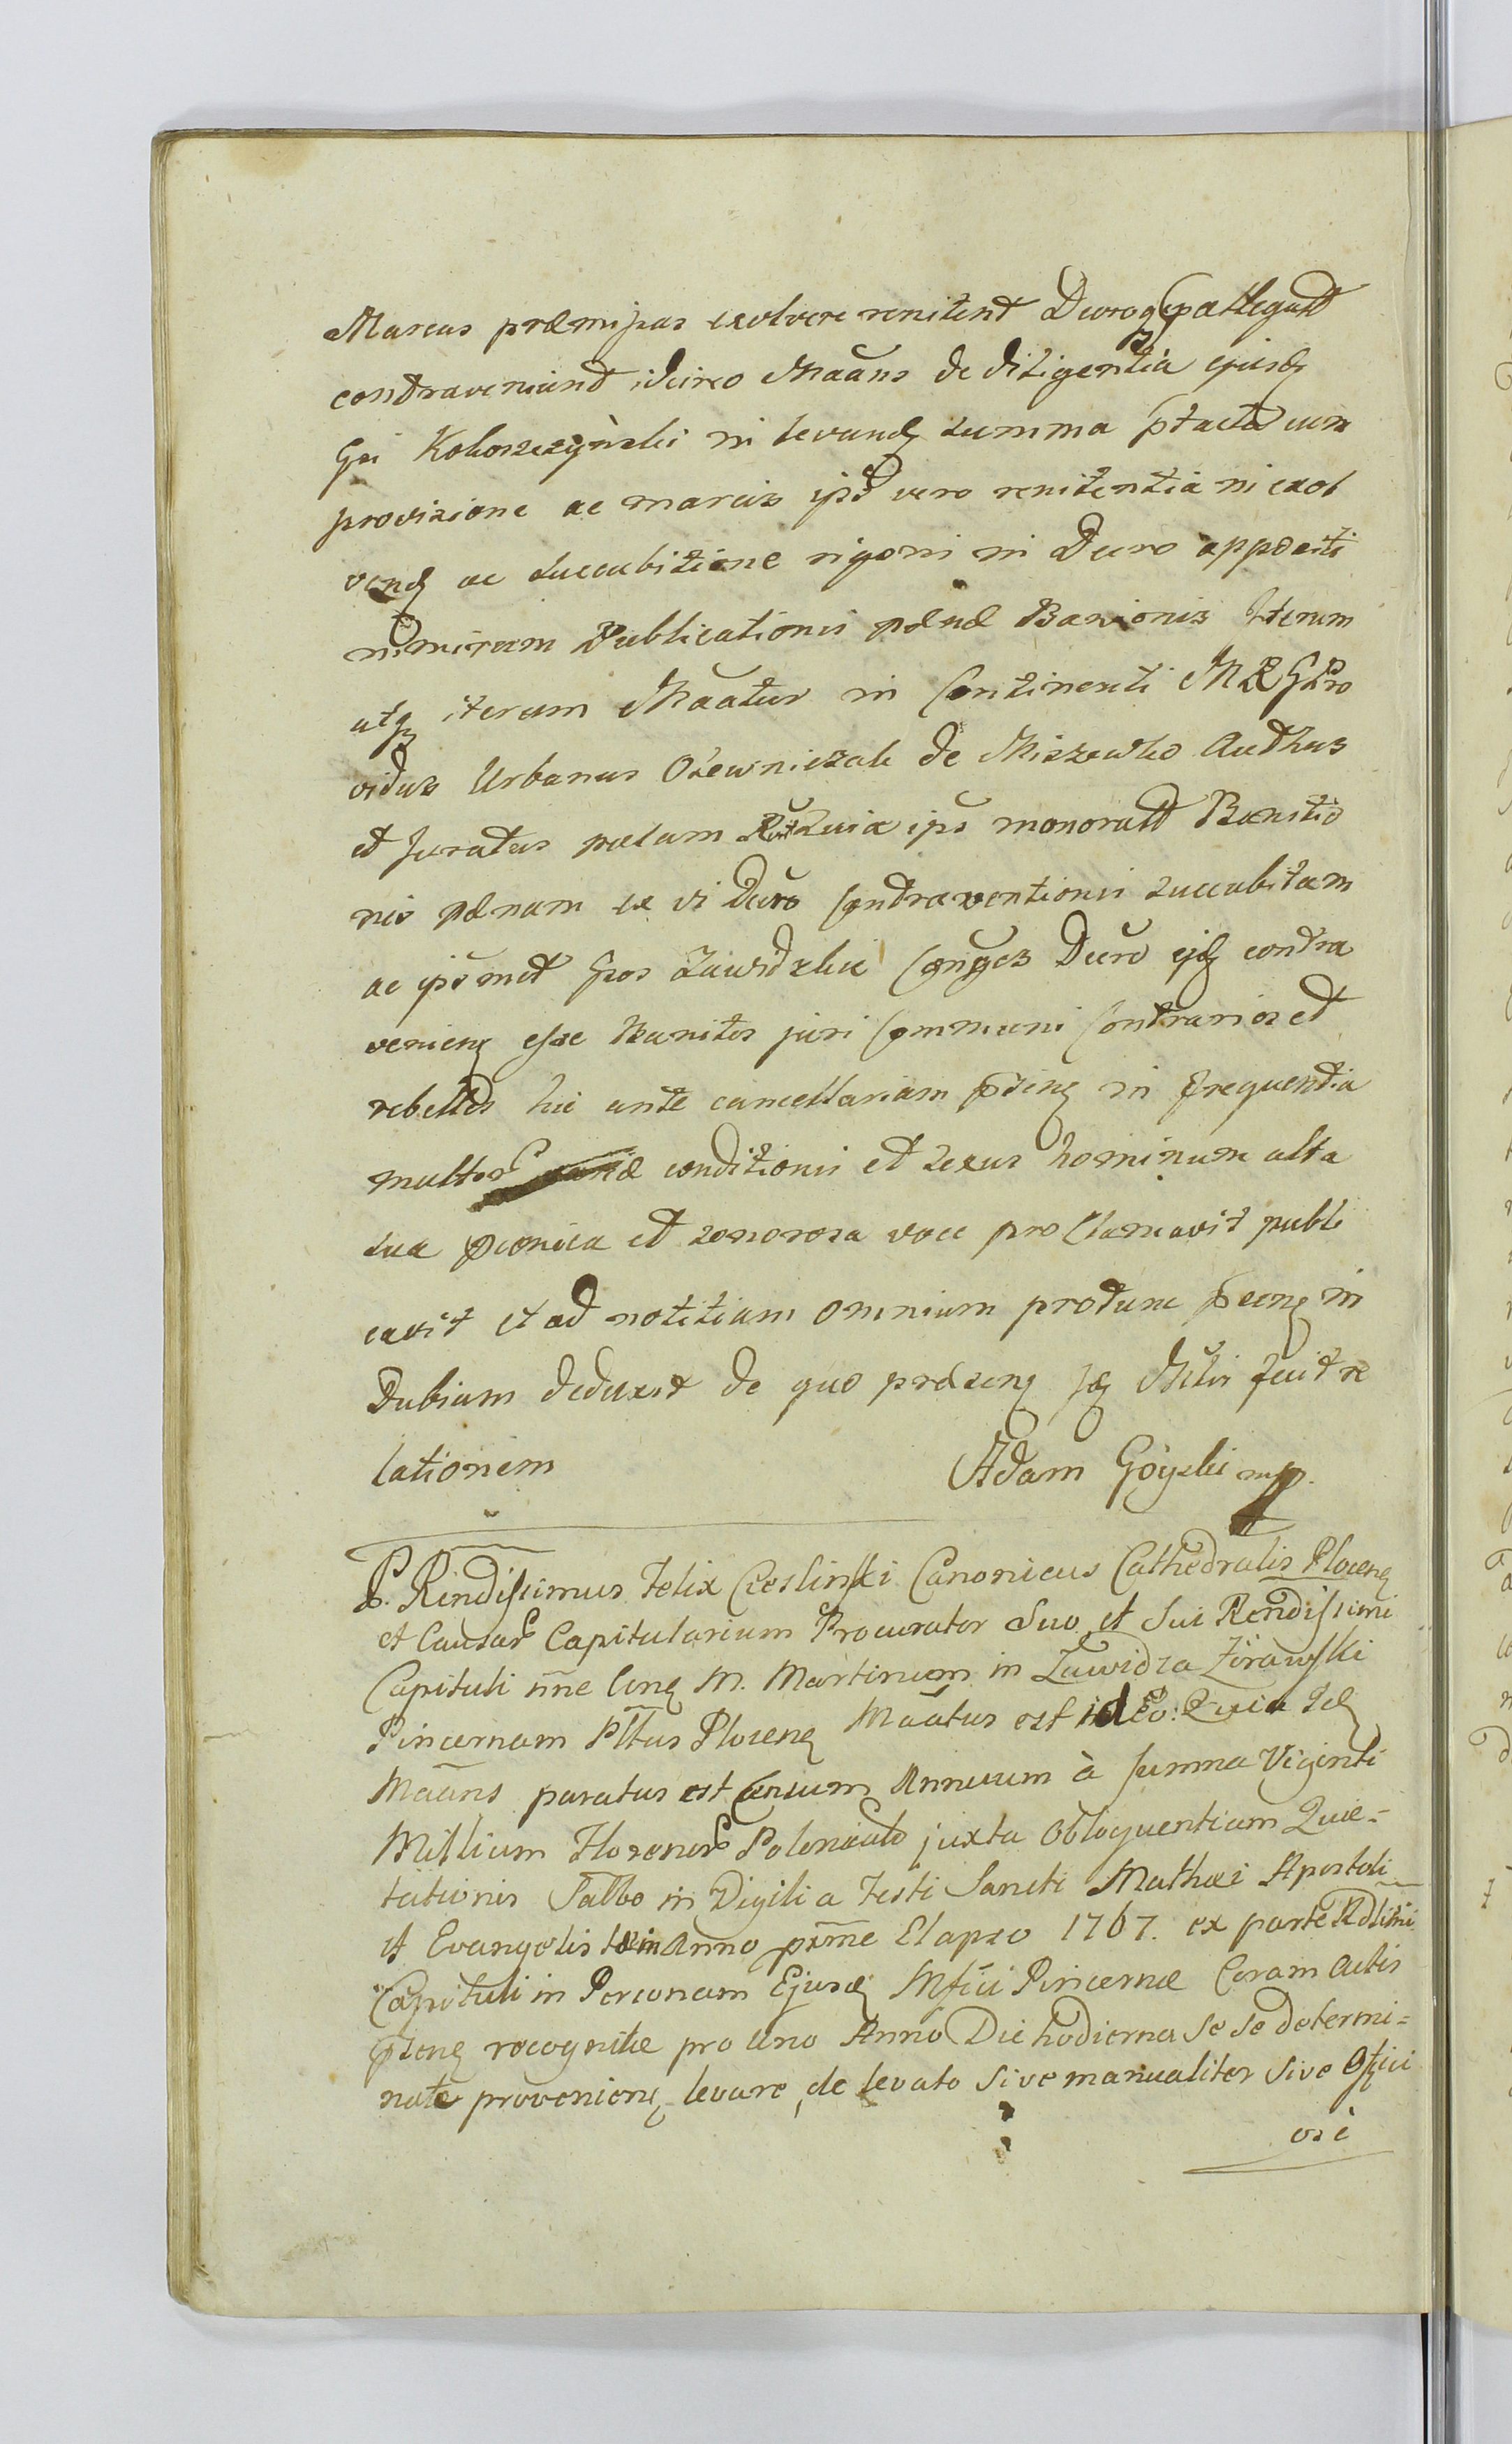 Marcas præmissas exolvere renitent Decroq pallegatt
contraveniund idcirco Maans de diligentia ejusd
Gsi Kokoszczynski in levand summa ptacta cum
provisione ac marcis ipso vero renitentia in exol
vend ac succubitione rigoris in Decro appositi
nimirum Publicationis pænæ Banionis Iterum
atq iterum Maatur in Continenti MRS Pro
vidus Urbanus Olewniczak de Miszewko Authus
et Juratus palam Quia ips monoratt Bannitio
nis pænam ex vi Decro Contraventionis succubitam
ac ipsmet Gsos Zawidzkie Conges Decro ejd contra
venien esse Banitos juri Communi Contrarios et
rebelles hic ante cancellariam psenq in frequentia
multor variæ conditionis et sexus hominum alta
sua præonica et sonorosa voce proclamavit publi
cavit et ad notitiam omnium protunc psenq in
dubiam deduxit de quo præsenq Jq Mtri fecit re
lationem Adam Góyski mp.
P. Rindissimus Felix Cieslinski Canonicus Cathedralis Plocenq
et Causar Capitularium Procurator Suo et Sui Rendissimi
Capituli nne Conq M. Martinum in Zawidza Zórawski
Pincernam Plttus Plocenq Maatus est ideo: Quia Id
Maans paratus est Censum Annuum à Summa Viginti
Millium Florenor Polonicalo juxta Obloquentiam Quie=
tationis Sabbo in Vigilia Festi Sancti Mathæi Apostoli
et Evangelistæ in Anno prme Elapso 1767. ex parte Rdlmi
Capituli in Personam Ejusd Mfici Pincernæ Coram Actis
psenq recognitæ pro uno Anno Die hodierna se se determi=
nate provenienq levare, de levato sive manualiter sive Offici
osè